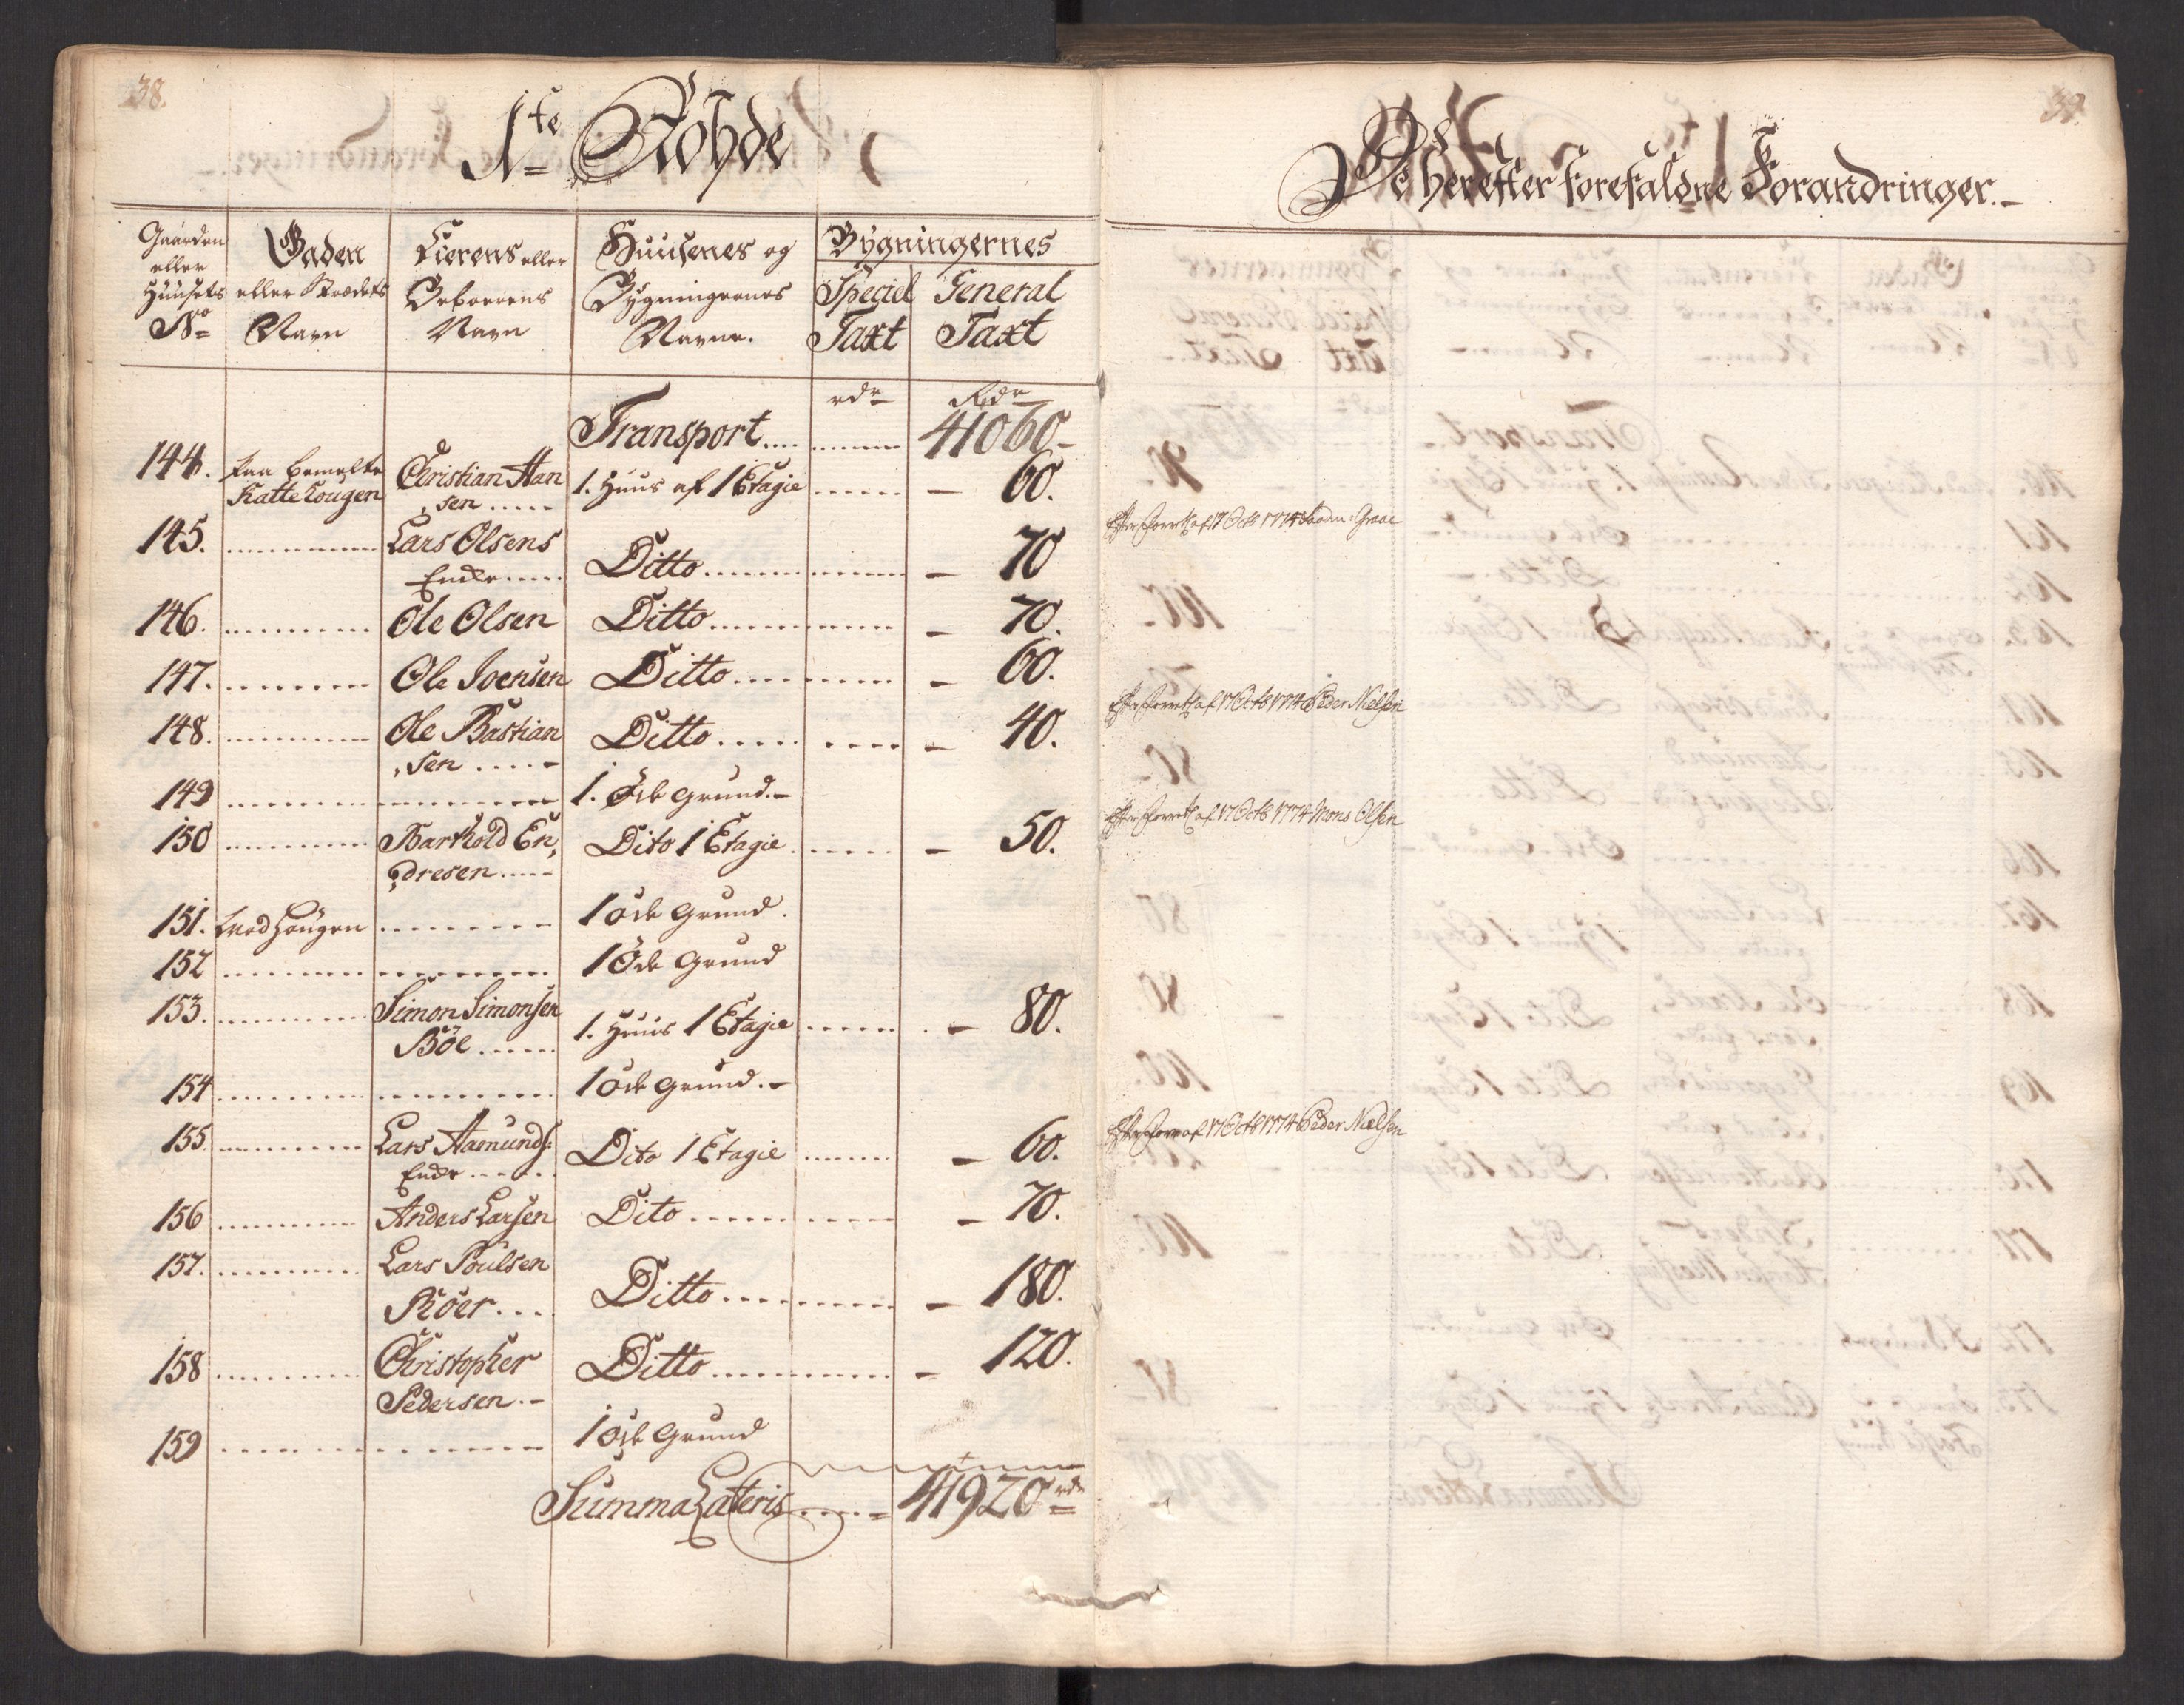 38.
1te Rohde
Gaarden eller Huusets No
Gaden eller Strædets Navn
Eierens eller Beboerens Navn
Huusenes og Bygningernes Navne.
Bygningernes
Speciel Taxt
General Taxt
rdr Rdr
Transport.... 41060-
144. Paa bemelte Christian Han 1. Huus af 1 Etagie ...... - 60.
Kattehougen sen .....
145. ........... Lars Olsens Ditto .............. - 70
Enke .....
146. .......... Ole Olsen Ditto .............. - 70.
147. ......... Ole Joensen Ditto ............ - 60.
148. .......... Ole Bastian Ditto ..... .... - 40.
sen ..... -
149 ........ ............ 1. Øde Grund.-
150 .......... Barthold En, Dito 1 Etagie ...... - 50.
dresen.....
151. hougen ........ 1 øde Grund.
152 ........ ......... 1 Øde Grund
153. .......... Simon Simonsen 1. Huus 1 Etagie ...... - 80.
Böe ......
154 ........ .......... 1 øde Grund.-
155. .......... Lars Aamunds: Dito 1 Etagie ...... - 60.
Enke ......
156 .......... Anders Larsen Dito ........... - 70.
157. .......... Lars Poulsen Ditto ............ - 180.
Röer....
158 .......... Christopher Ditto ............ - 120.
Pedersen.-
159 ........ ........ 1 øde Grund
Summa Lateris ..... = 41920 rdr
39.
De herefter forefaldne Forandringer.-
Efter Forretn af 17 Octb 1774 Graae
Efter Forretn af 17 Octb 1774 Peder Nielsen
Efter Forretn af 17 Octb 1774 Mons Olsen
Efter Forr af 17 Octb 1774 Peder Nielsen